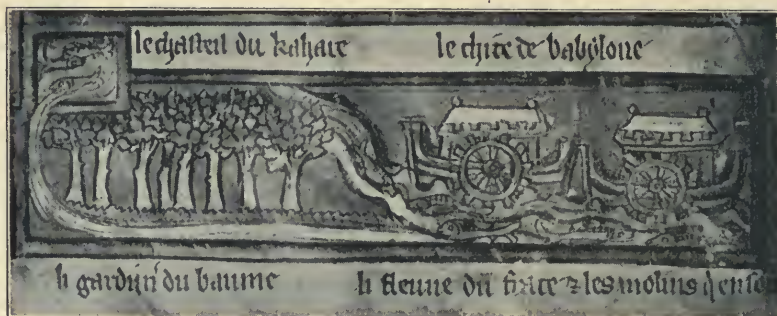 le chastell du kahaire le chite de babylone
li gardijn du baume li fleuue du & les molins q'